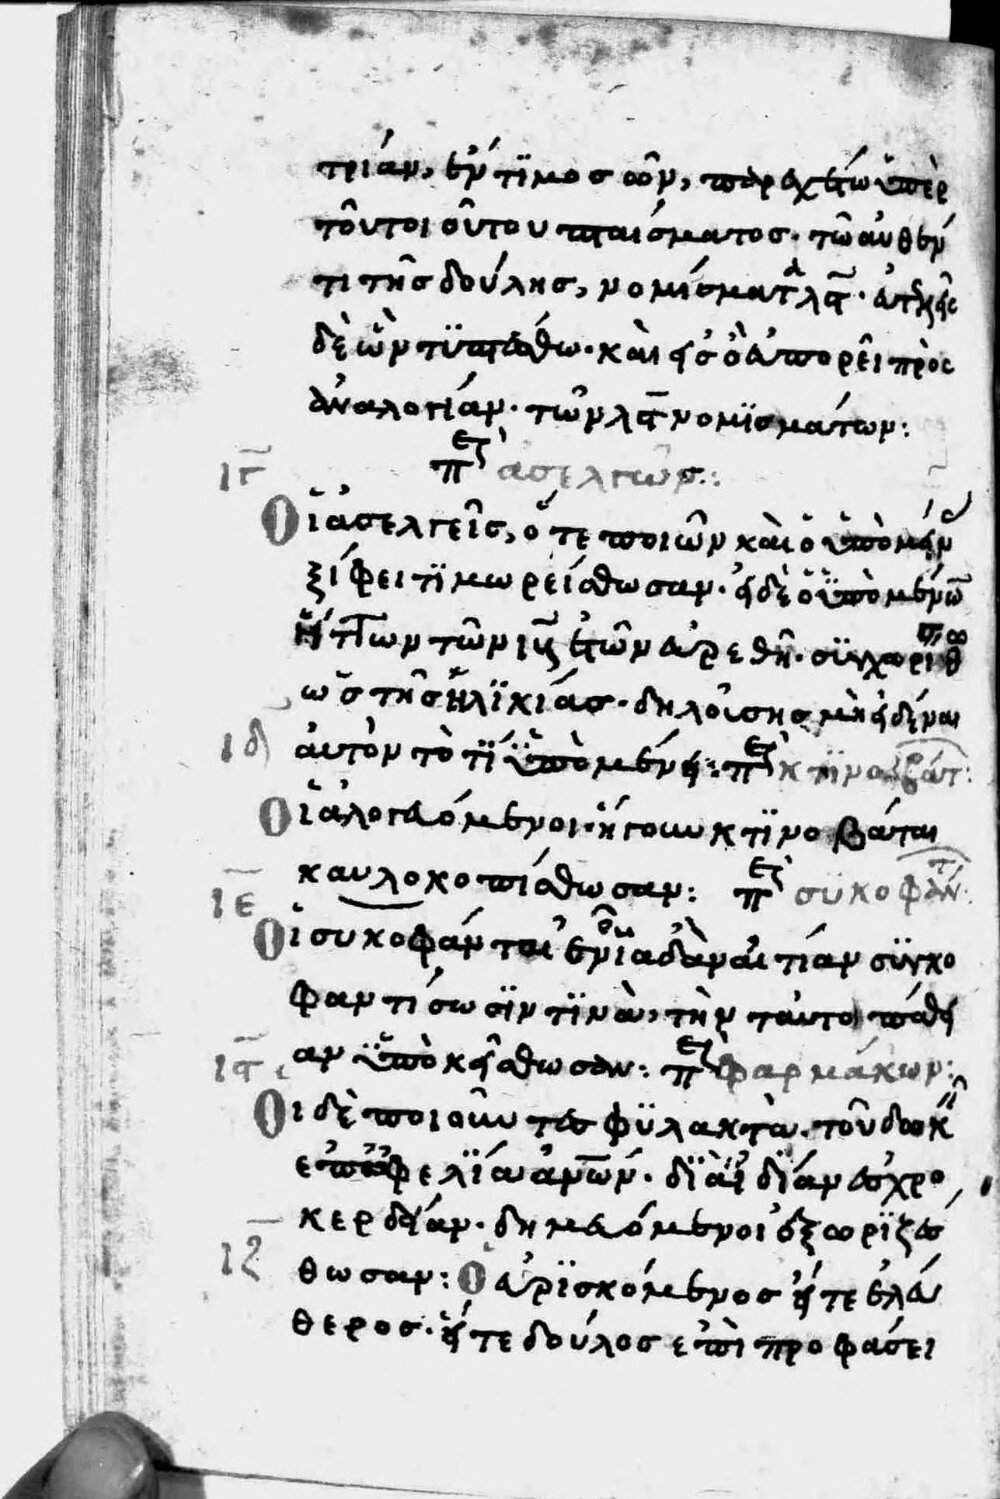 τριάν, ἔντϊμοσ ὢν, παρεχέτω ὑπὲρ
τοῦ τοιούτου πταίσματος. τῶ αὐθέν
τι τῆς δούλησ, νομίσματα λϛ. ἀτελὴς
δὲ ὢν τϋπτέσθω. καὶ εἰσὸ εὐπορεῖ πρὸς
ἀναλογίαν. τῶν λϛ νομϊσμάτων:
ιγ περὶ ἀσελγῶν:
Οἱ ἀσελγεῖς, ὅ τε ποιῶν καὶ ὁ ὑπομένων
ξίφει τϊμωρείσθωσαν. εἰ δὲ ὁ ὑπομένων
ἥττων τῶν ιβ ἐτῶν εὑρεθῆ. σϋγχωρίσθω
ὡσ τῆς ἡλϊκίας. δηλούσης μὴ εἰδέναι
ιδ αὐτὸν τὸ τί ὑπομένει: περὶ κτϊνοβατ:
Οἱ ἀλογευόμενοι. ἤγουν κτϊνοβάται
καυλοκοπίσθωσαν: περὶ συκοφαντ:
ιε
Οἱ συκοφάνται ἐν οἱαδὰν αἰτίαν σϋκο
φαντίσωσϊν τϊνὰ, τὴν ταυτοπάθει
ιϛ αν ὑποκείσθωσαν: περὶ φαρμάκων:
Οἱ δὲ ποιοῦντες φϋλακτὰ. τοῦ δοκεῖν
ἐπ ὠφελϊία ἀνων. δϊὰ ἰδϊάν αἰσχρο
κερδείαν. δημευόμενοι ἐξορϊζέσ
ιζ θωσαν: Ὁ εὑρϊσκόμενοσ εἴτε ἐλεύ
θεροσ. εἴτε δούλοσ ἐπὶ προφάσει